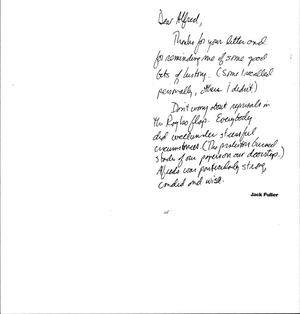 Dear Alfred,
Thanks for your letter and
for reminding me of some good
bits of history. (Some I recalled
personally, others I didn't)
Don't worry about reprisals in
the Royko flap. Everybody
did well under stressful
circumstances. (The protesters burned
stacks of our papers on our doorstep.)
was particularly strong,
candid and wise.
Jack Fuller